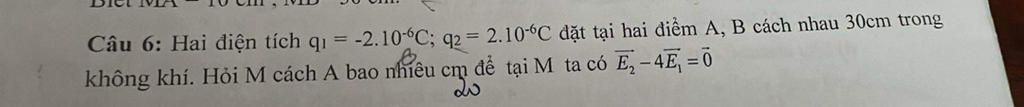 Biết MA = 10 cm , MB = 30 cm.
Câu 6: Hai điện tích q₁ = -2.10⁻⁶C; q₂ = 2.10⁻⁶C đặt tại hai điểm A, B cách nhau 30cm trong
không khí. Hỏi M cách A bao nhiêu cm để tại M ta có \overrightarrow{E_2} − 4\overrightarrow{E_1} = \vec{0}
20